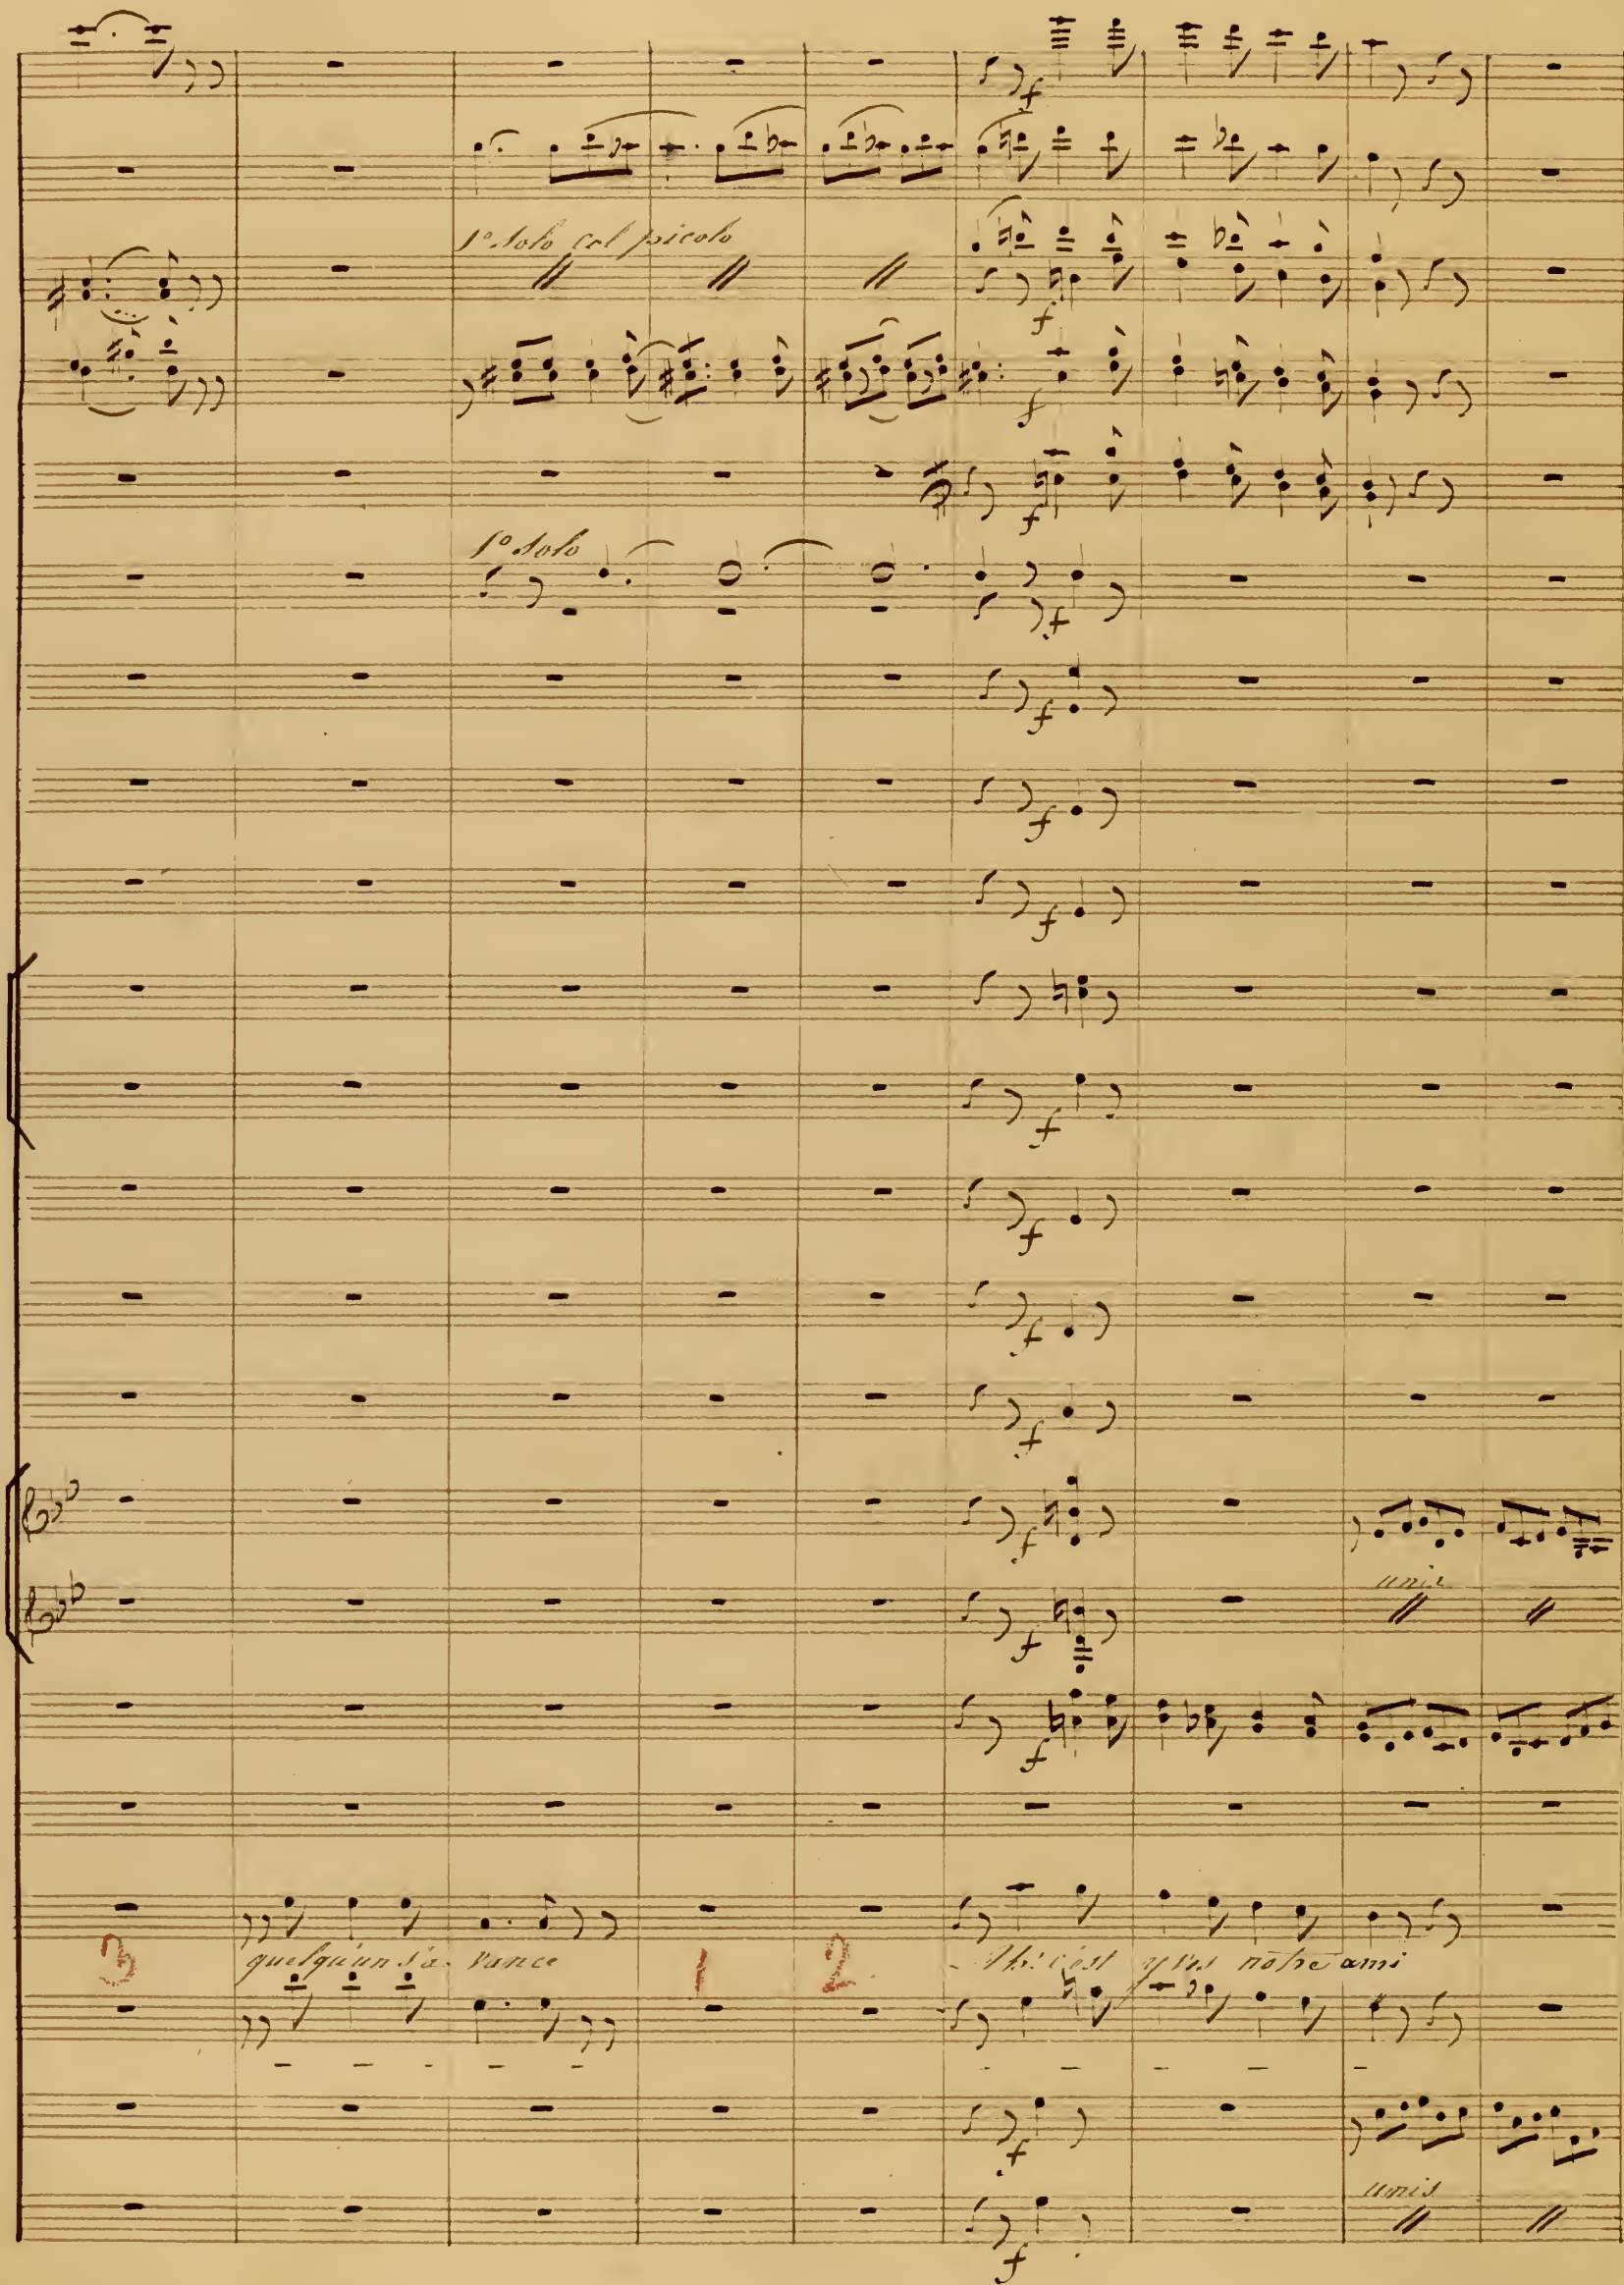 1º Solo col picolo
f
f
f
f
1º Solo
f
f
f
f
f
f
f
f
f
f
unis
f
f
3 quelqu'un s'a- vance 1 2 Ah! c'est yves notre ami
f
unis
f